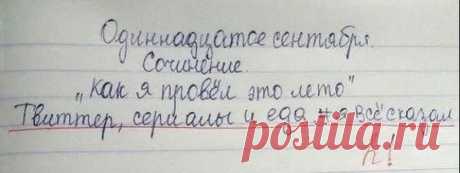 Одиннадцатое сентября.
Сочинение.
„Как я провёл это лето"
Твиттер, сериалы и еда я всё сказал
п!
postila.ru